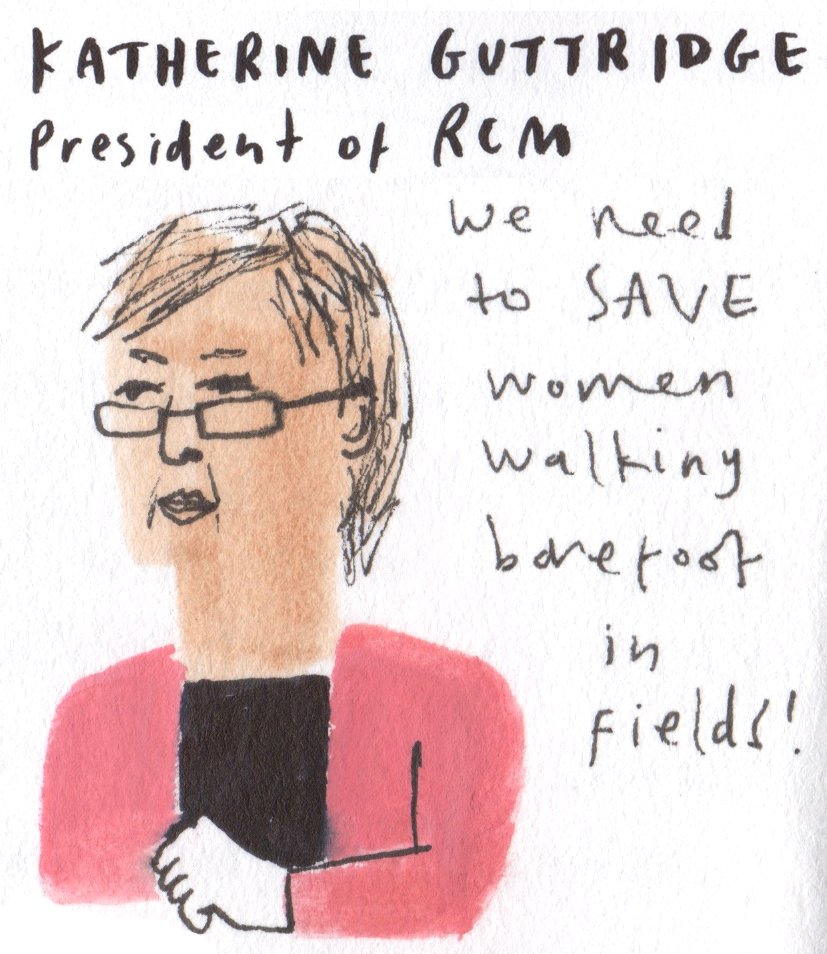 KATHERINE GUTTRIDGE
President of RCM
we need
to SAVE
women
walking
barefoot
in
fields!